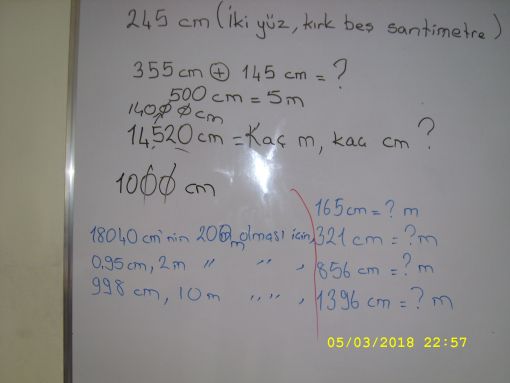 245 cm (İki yüz, kırk beş santimetre)
355 cm + 145 cm = ?
500 cm = 5m
1400 cm
14,520 cm = Kaç m, kaç cm ?
1000 cm
18040 cm'nin 200 m olması için,
0,95 cm, 2m " " " ,
998 cm, 10m " " " ,
165 cm = ? m
321 cm = ? m
856 cm = ? m
1396 cm = ? m
05/03/2018 22:57